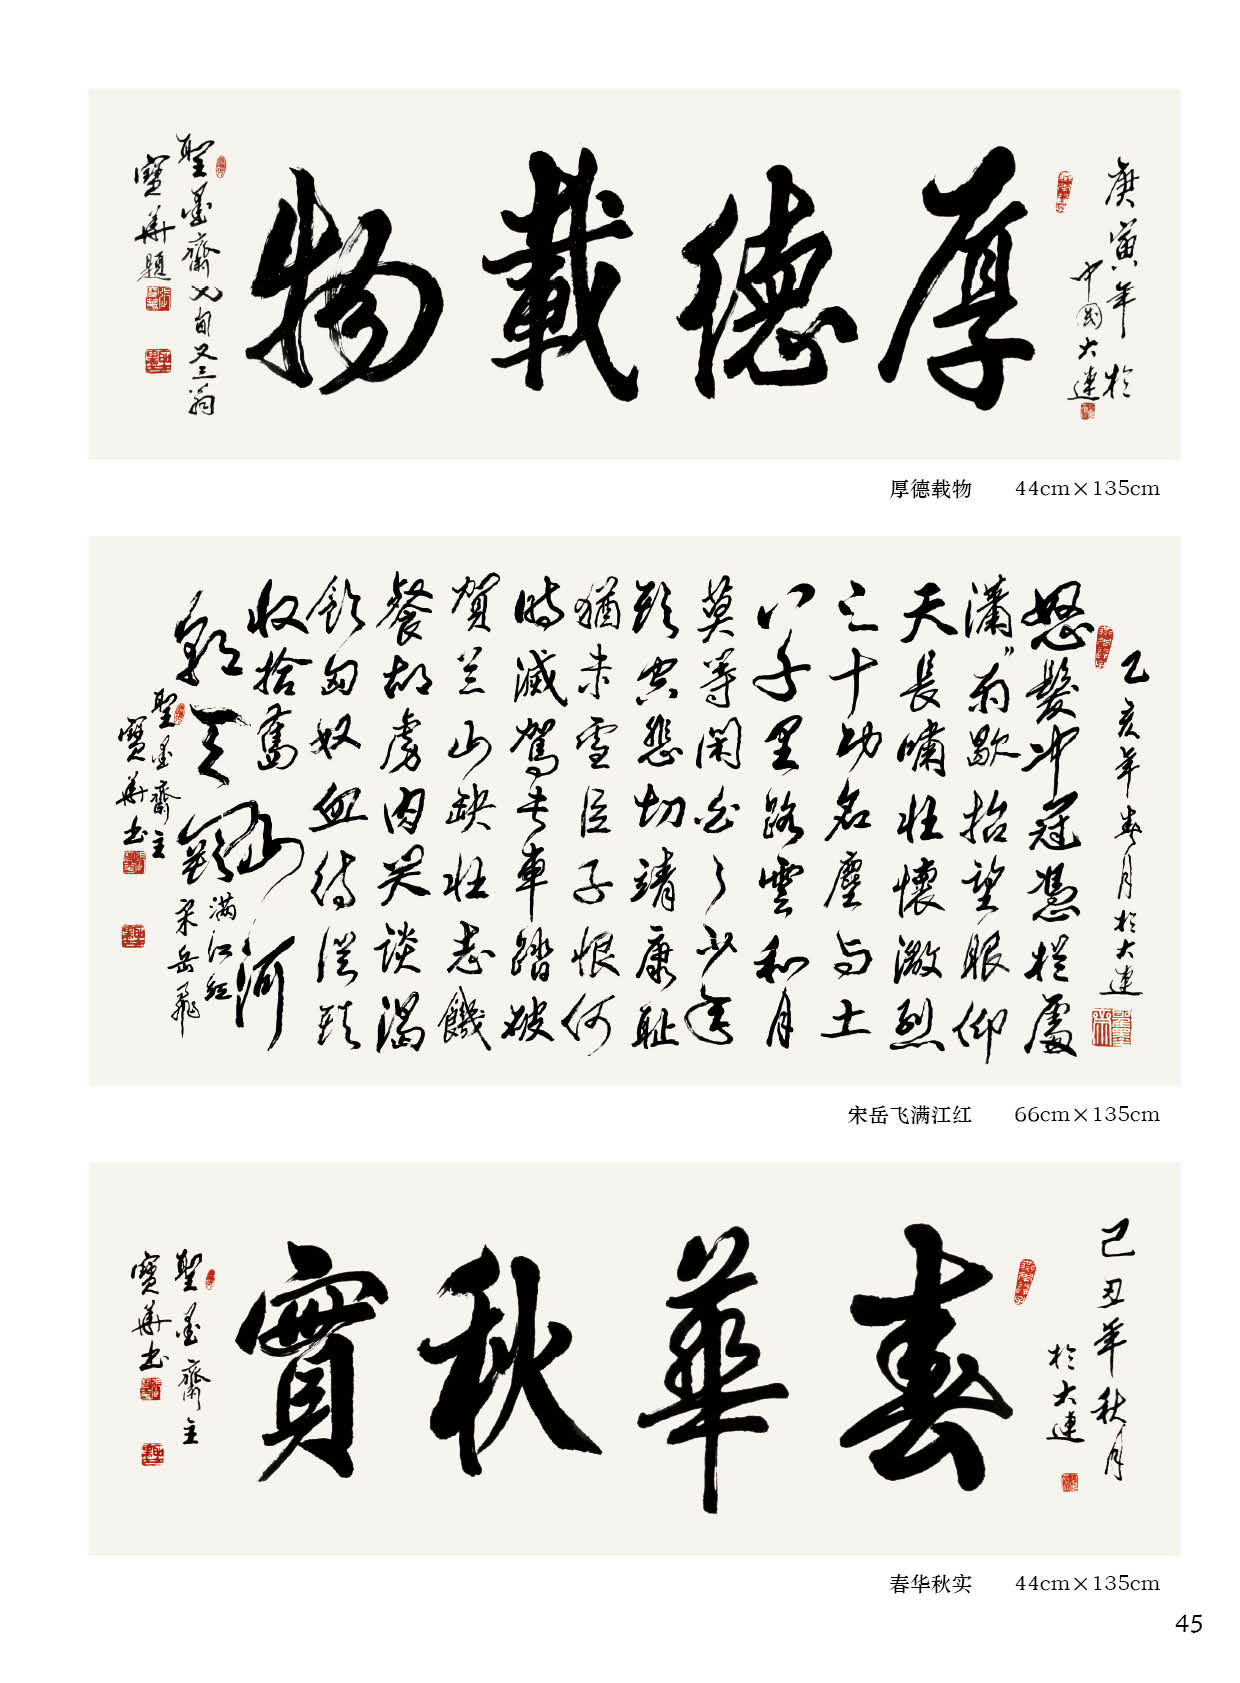 庚寅年於
中國大連
厚德載物
聖墨齋七旬又三翁
寶華題
厚德载物 44cm×135cm
乙亥年春月於大連
怒髮冲冠憑栏處
潇"雨歇抬望眼仰
天長嘯壮懷激烈
三十功名塵与土
八千里路雲和月
莫等闲白了少年
頭空悲切靖康耻
猶未雪臣子恨何
時滅駕长車踏破
賀兰山缺壮志饑
餐胡虏肉笑談渴
飲匈奴血待從頭
收拾舊山河
朝天闕
满江红
宋岳飛
聖墨齋主
寶華书
宋岳飞满江红 66cm×135cm
己丑年秋月
於大連
春華秋實
聖墨齋主
寶華书
春华秋实 44cm×135cm
45